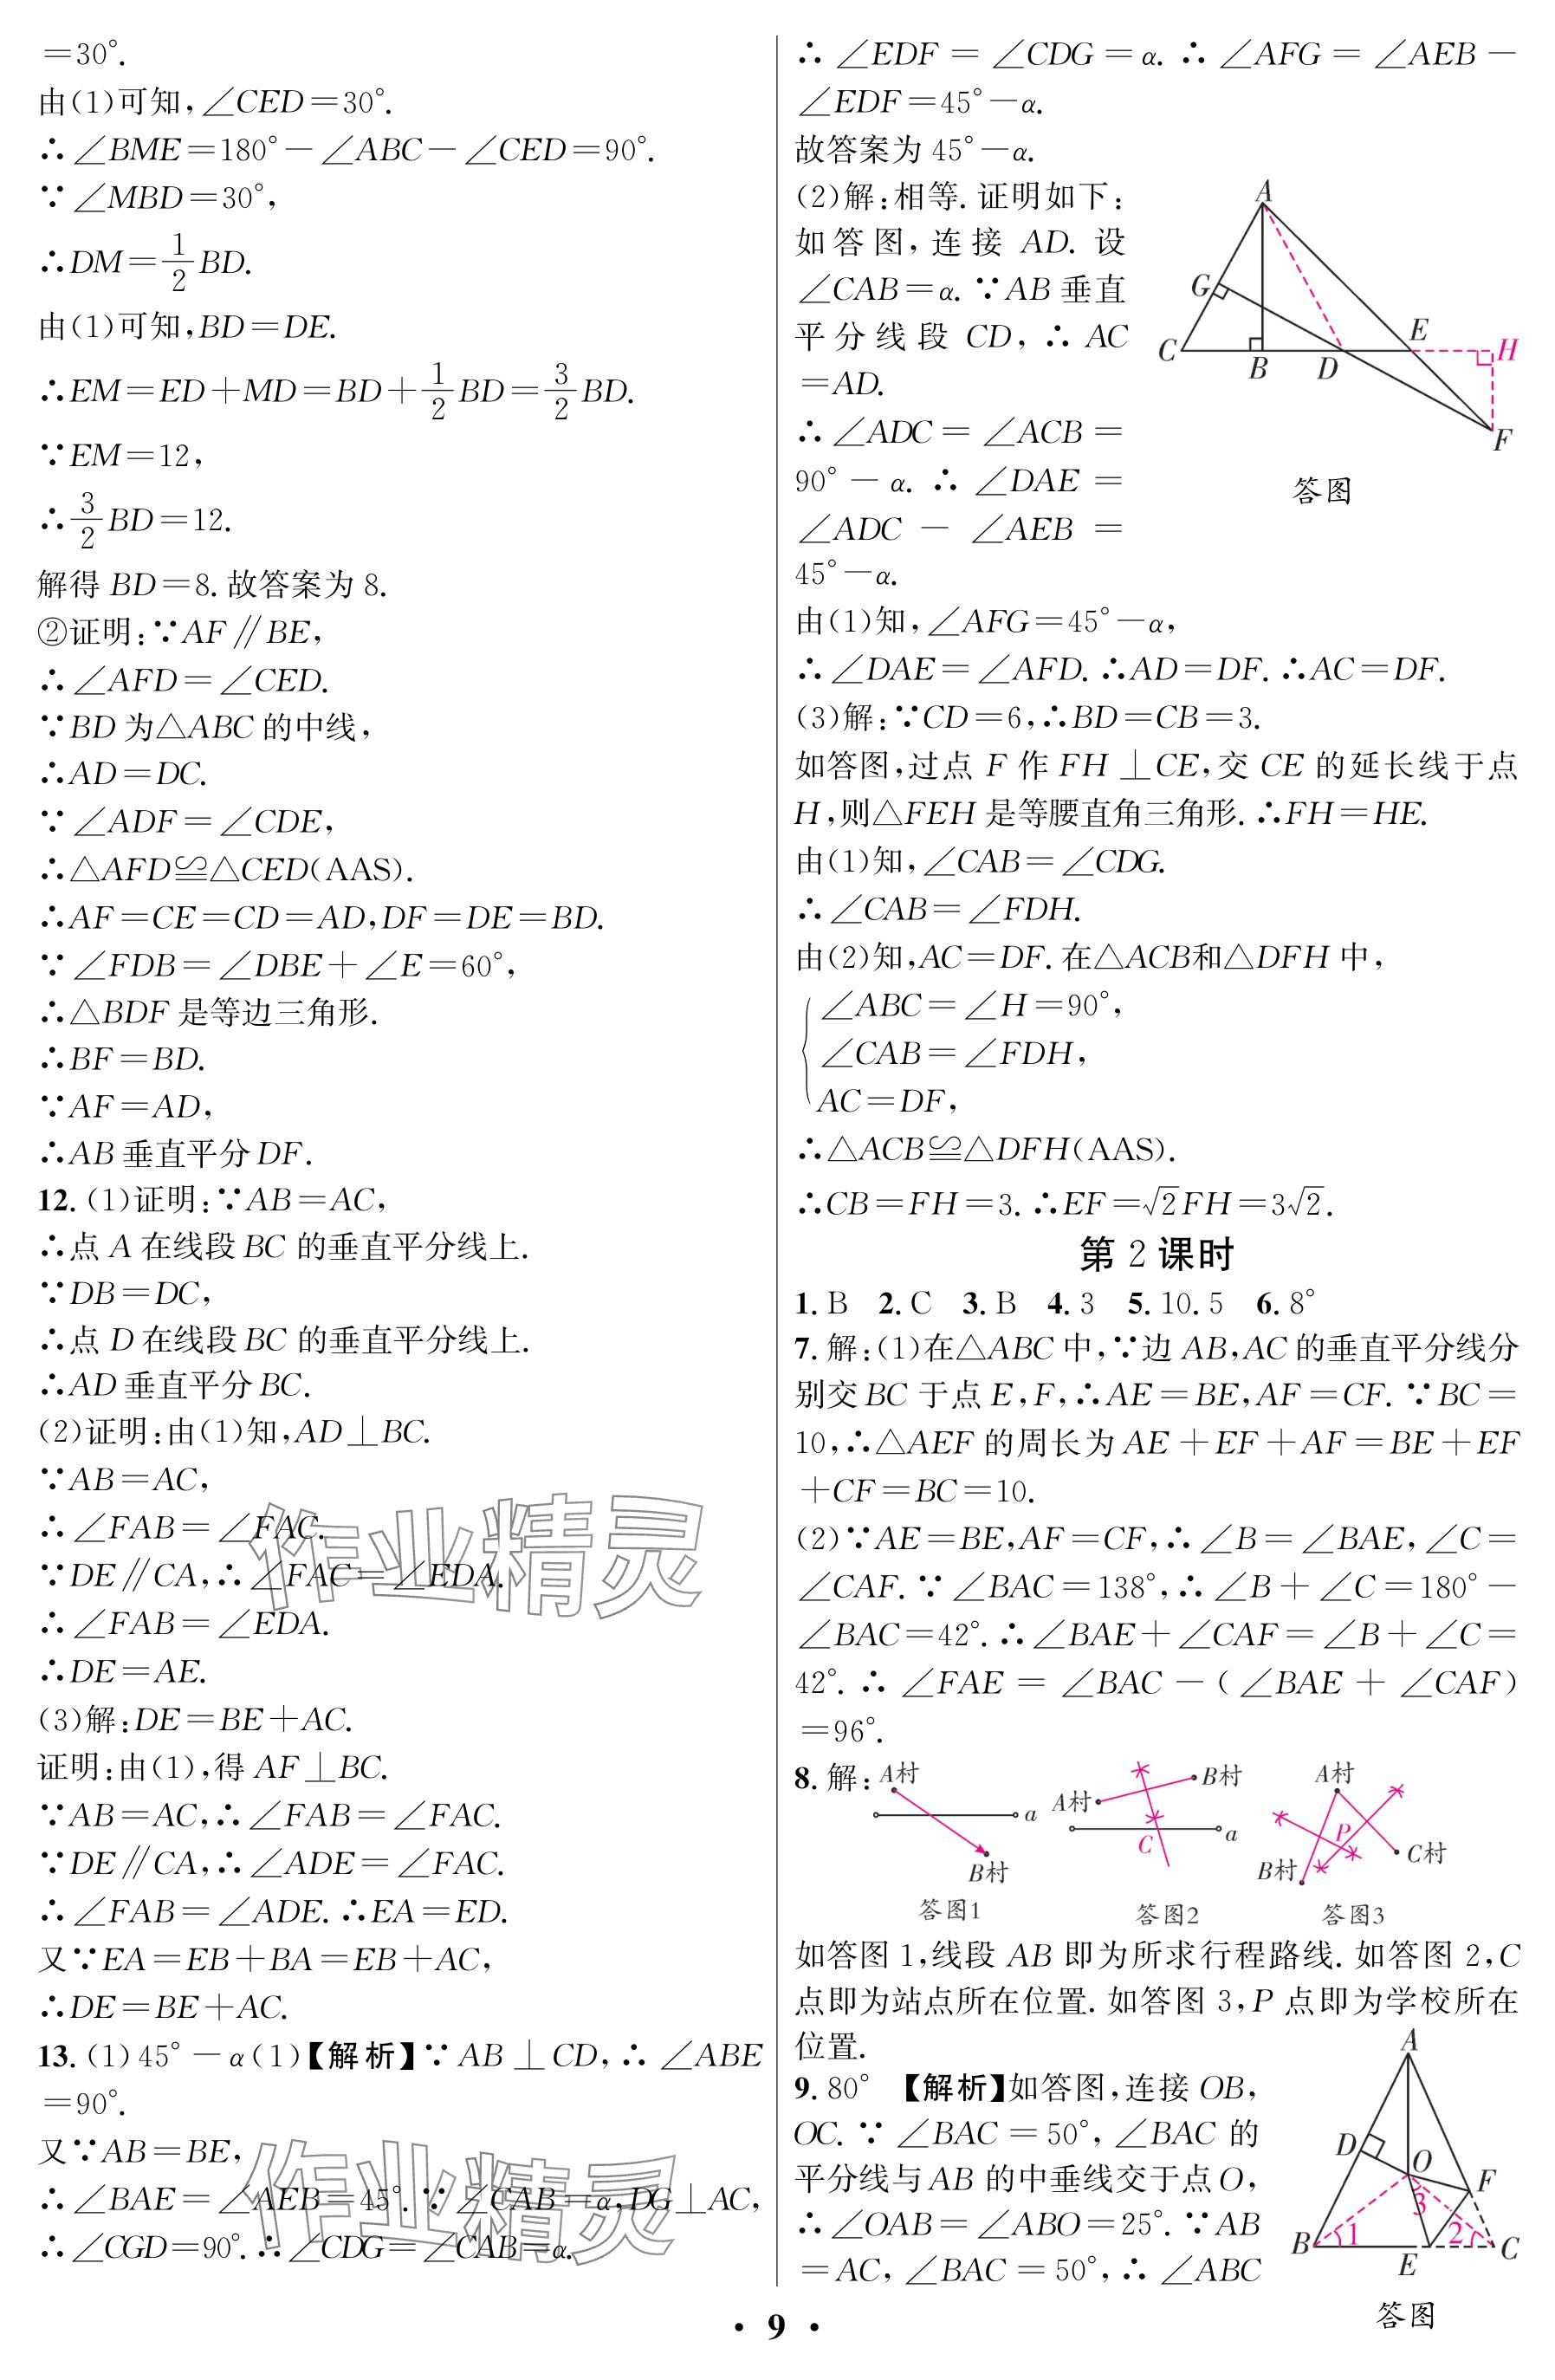 =30°.
由(1)可知,∠CED=30°.
∴∠BME=180°-∠ABC-∠CED=90°.
∵∠MBD=30°,
∴DM=1/2 BD.
由(1)可知,BD=DE.
∴EM=ED+MD=BD+1/2 BD=3/2 BD.
∵EM=12,
∴3/2 BD=12.
解得 BD=8.故答案为 8.
②证明:∵AF∥BE,
∴∠AFD=∠CED.
∵BD 为△ABC 的中线,
∴AD=DC.
∵∠ADF=∠CDE,
∴△AFD≌△CED(AAS).
∴AF=CE=CD=AD,DF=DE=BD.
∵∠FDB=∠DBE+∠E=60°,
∴△BDF 是等边三角形.
∴BF=BD.
∵AF=AD,
∴AB 垂直平分 DF.
12.(1)证明:∵AB=AC,
∴点 A 在线段 BC 的垂直平分线上.
∵DB=DC,
∴点 D 在线段 BC 的垂直平分线上.
∴AD 垂直平分 BC.
(2)证明:由(1)知,AD⊥BC.
∵AB=AC,
∴∠FAB=∠FAC.
∵DE∥CA,∴∠FAC=∠EDA.
∴∠FAB=∠EDA.
∴DE=AE.
(3)解:DE=BE+AC.
证明:由(1),得 AF⊥BC.
∵AB=AC,∴∠FAB=∠FAC.
∵DE∥CA,∴∠ADE=∠FAC.
∴∠FAB=∠ADE.∴EA=ED.
又∵EA=EB+BA=EB+AC,
∴DE=BE+AC.
13.(1)45°-α(1)【解析】∵AB⊥CD,∴∠ABE
=90°.
又∵AB=BE,
∴∠BAE=∠AEB=45°.∵∠CAB=α,DG⊥AC,
∴∠CGD=90°.∴∠CDG=∠CAB=α.
作业精灵
作业精灵
∴∠EDF=∠CDG=α.∴∠AFG=∠AEB-
∠EDF=45°-α.
故答案为 45°-α.
(2)解:相等.证明如下:
如答图,连接 AD.设
∠CAB=α.∵AB 垂直
平分线段 CD,∴AC
=AD.
∴∠ADC=∠ACB=
90°-α.∴∠DAE=
∠ADC-∠AEB=
45°-α.
A
G
C
B
D
E
H
F
答图
由(1)知,∠AFG=45°-α,
∴∠DAE=∠AFD.∴AD=DF.∴AC=DF.
(3)解:∵CD=6,∴BD=CB=3.
如答图,过点 F 作 FH⊥CE,交 CE 的延长线于点
H,则△FEH 是等腰直角三角形.∴FH=HE.
由(1)知,∠CAB=∠CDG.
∴∠CAB=∠FDH.
由(2)知,AC=DF.在△ACB和△DFH 中,
∠ABC=∠H=90°,
∠CAB=∠FDH,
AC=DF,
∴△ACB≌△DFH(AAS).
∴CB=FH=3.∴EF=√2FH=3√2.
第 2 课时
1.B 2.C 3.B 4.3 5.10.5 6.8°
7.解:(1)在△ABC 中,∵边 AB,AC 的垂直平分线分
别交 BC 于点 E,F,∴AE=BE,AF=CF.∵BC=
10,∴△AEF 的周长为 AE+EF+AF=BE+EF
+CF=BC=10.
(2)∵AE=BE,AF=CF,∴∠B=∠BAE,∠C=
∠CAF.∵∠BAC=138°,∴∠B+∠C=180°-
∠BAC=42°.∴∠BAE+∠CAF=∠B+∠C=
42°.∴∠FAE=∠BAC-(∠BAE+∠CAF)
=96°.
8.解:
A村
a
B村
答图1
A村
B村
C
a
答图2
A村
P
B村
C村
答图3
如答图 1,线段 AB 即为所求行程路线.如答图 2,C
点即为站点所在位置.如答图 3,P 点即为学校所在
位置.
9.80° 【解析】如答图,连接 OB,
OC.∵∠BAC=50°,∠BAC 的
平分线与 AB 的中垂线交于点 O,
∴∠OAB=∠ABO=25°.∵AB
=AC,∠BAC=50°,∴∠ABC
A
D
O
F
3
B
1
2
C
E
答图
· 9 ·